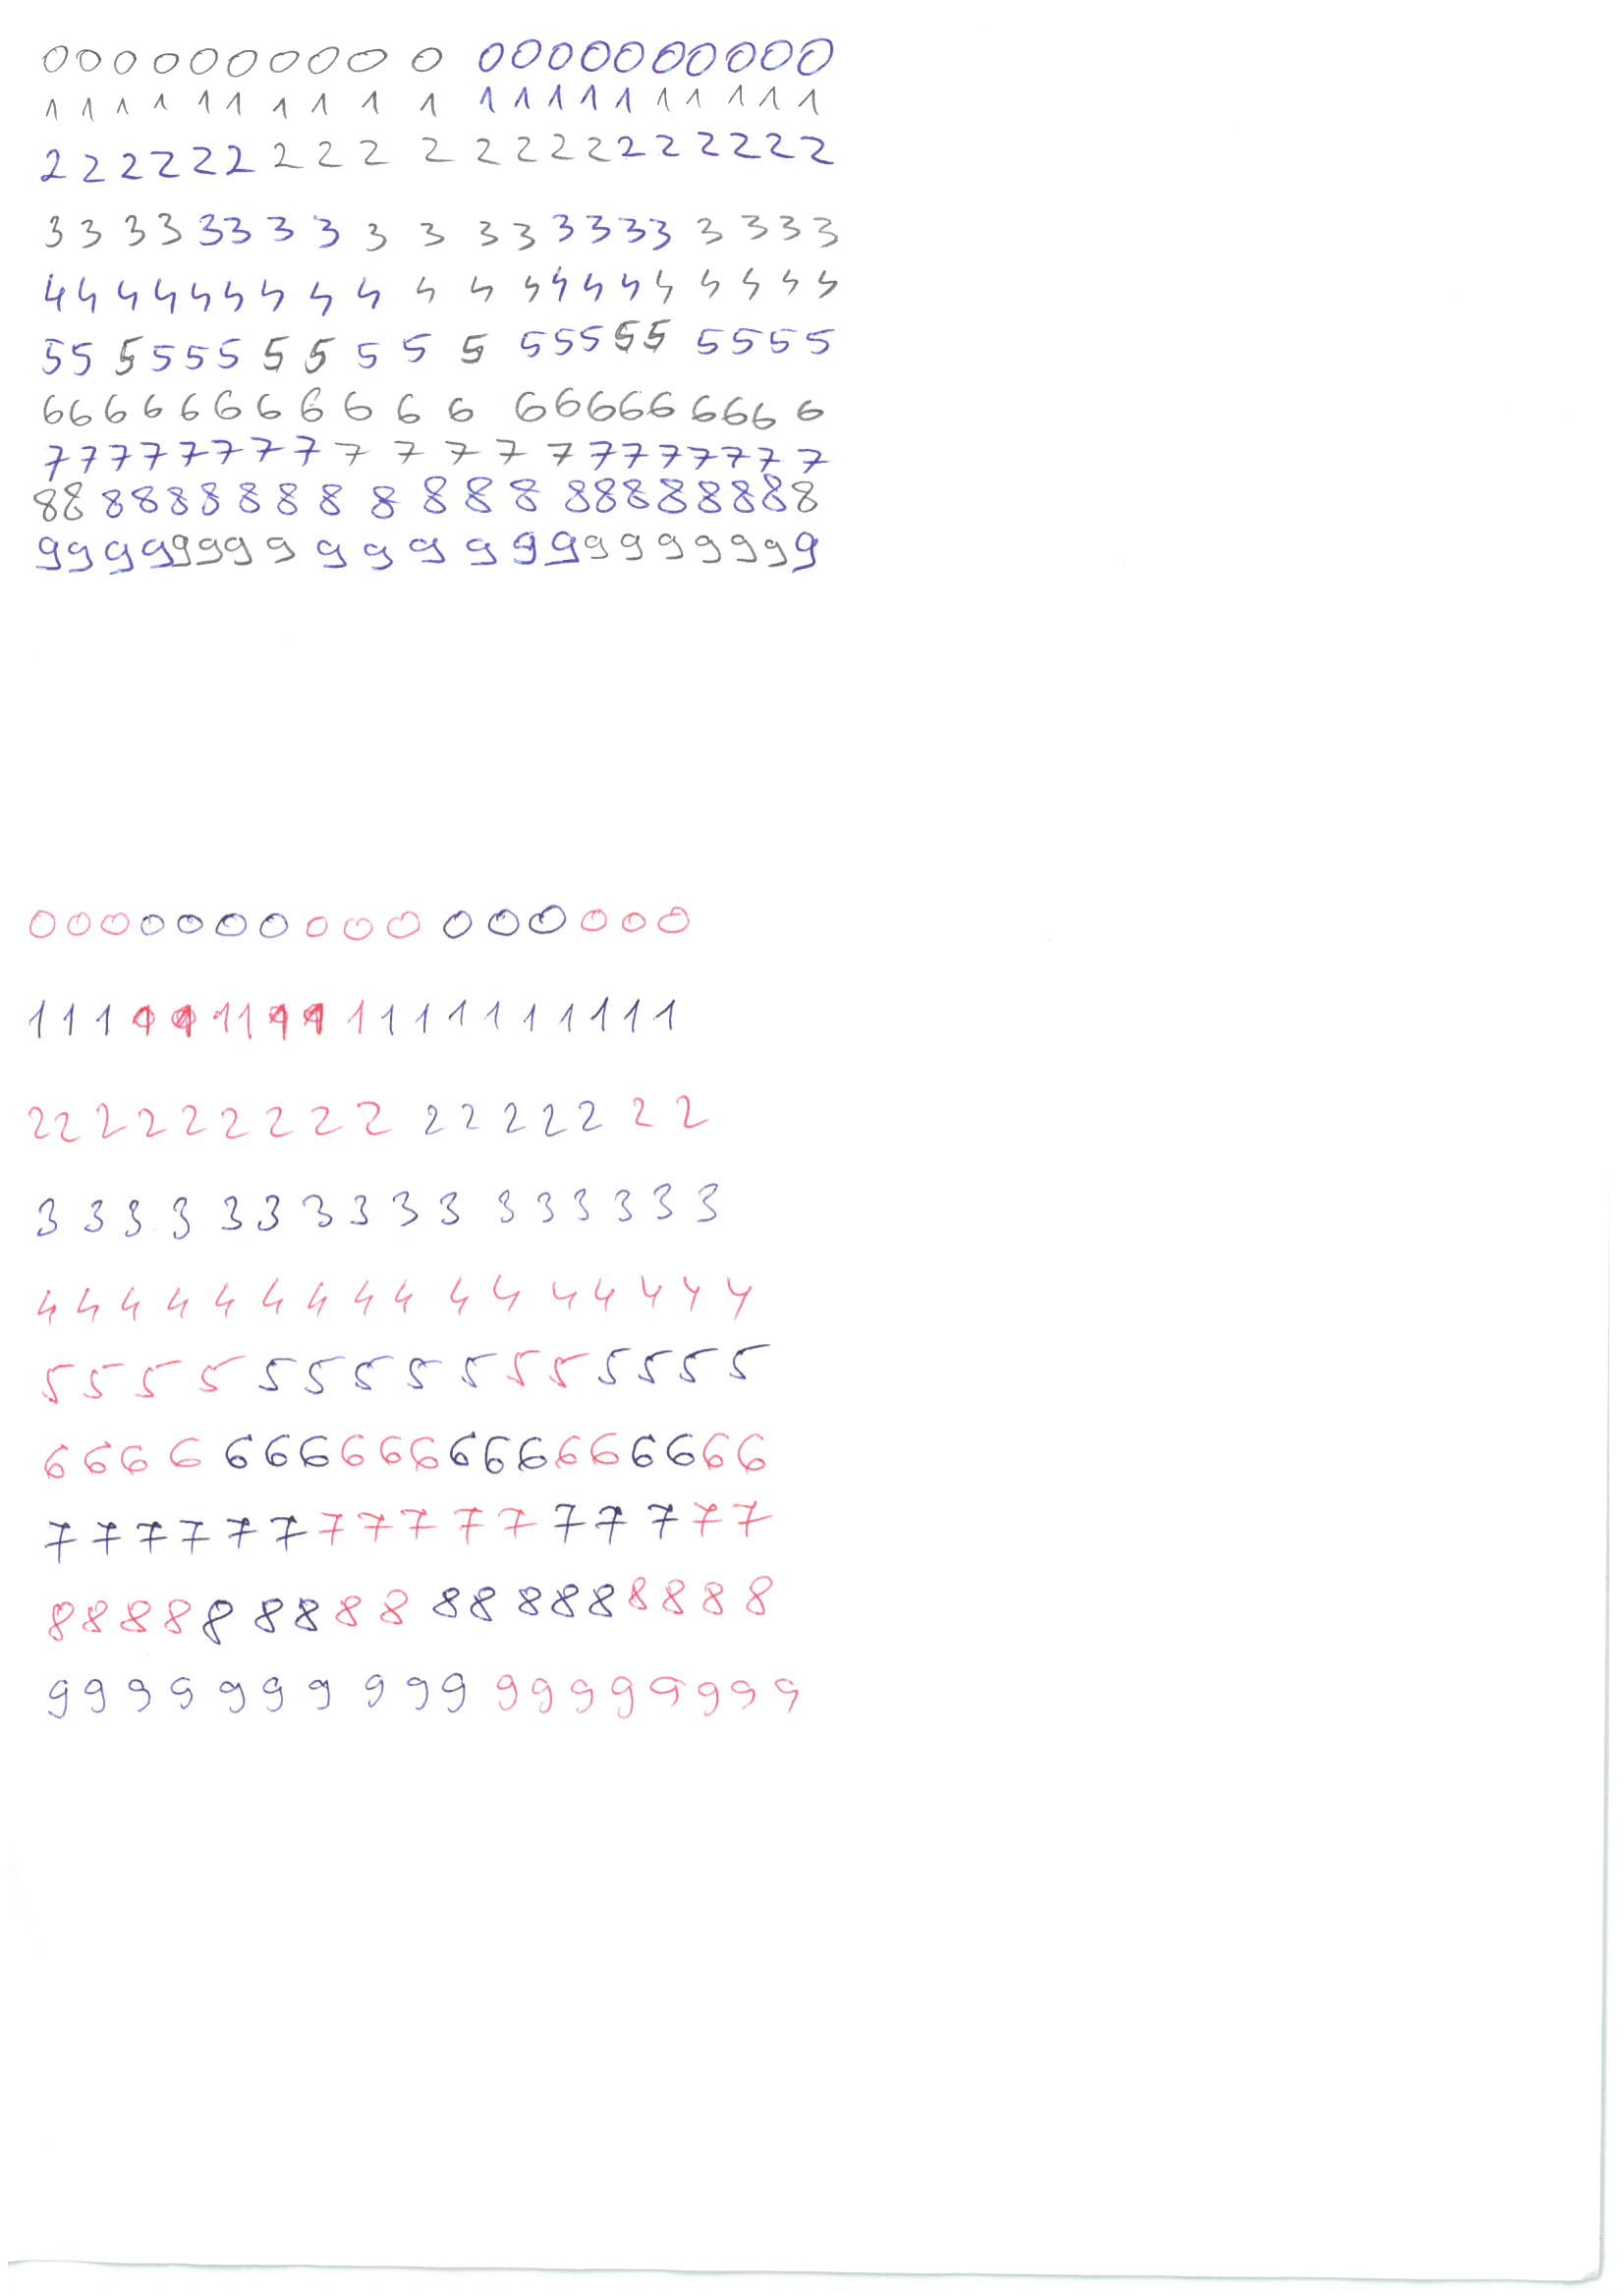 00000000000000000000
11111111111111111111
22222222222222222222
33333333333333333333
44444444444444444444
55555555555555555555
66666666666666666666
77777777777777777777
888888888888888888888
999999999999999999999
0000000000000000
1111111111111111111
2222222222222222
3333333333333333
4444444444444444
555555555555555
6666666666666666666
7777777777777777
888888888888888888
999999999999999999